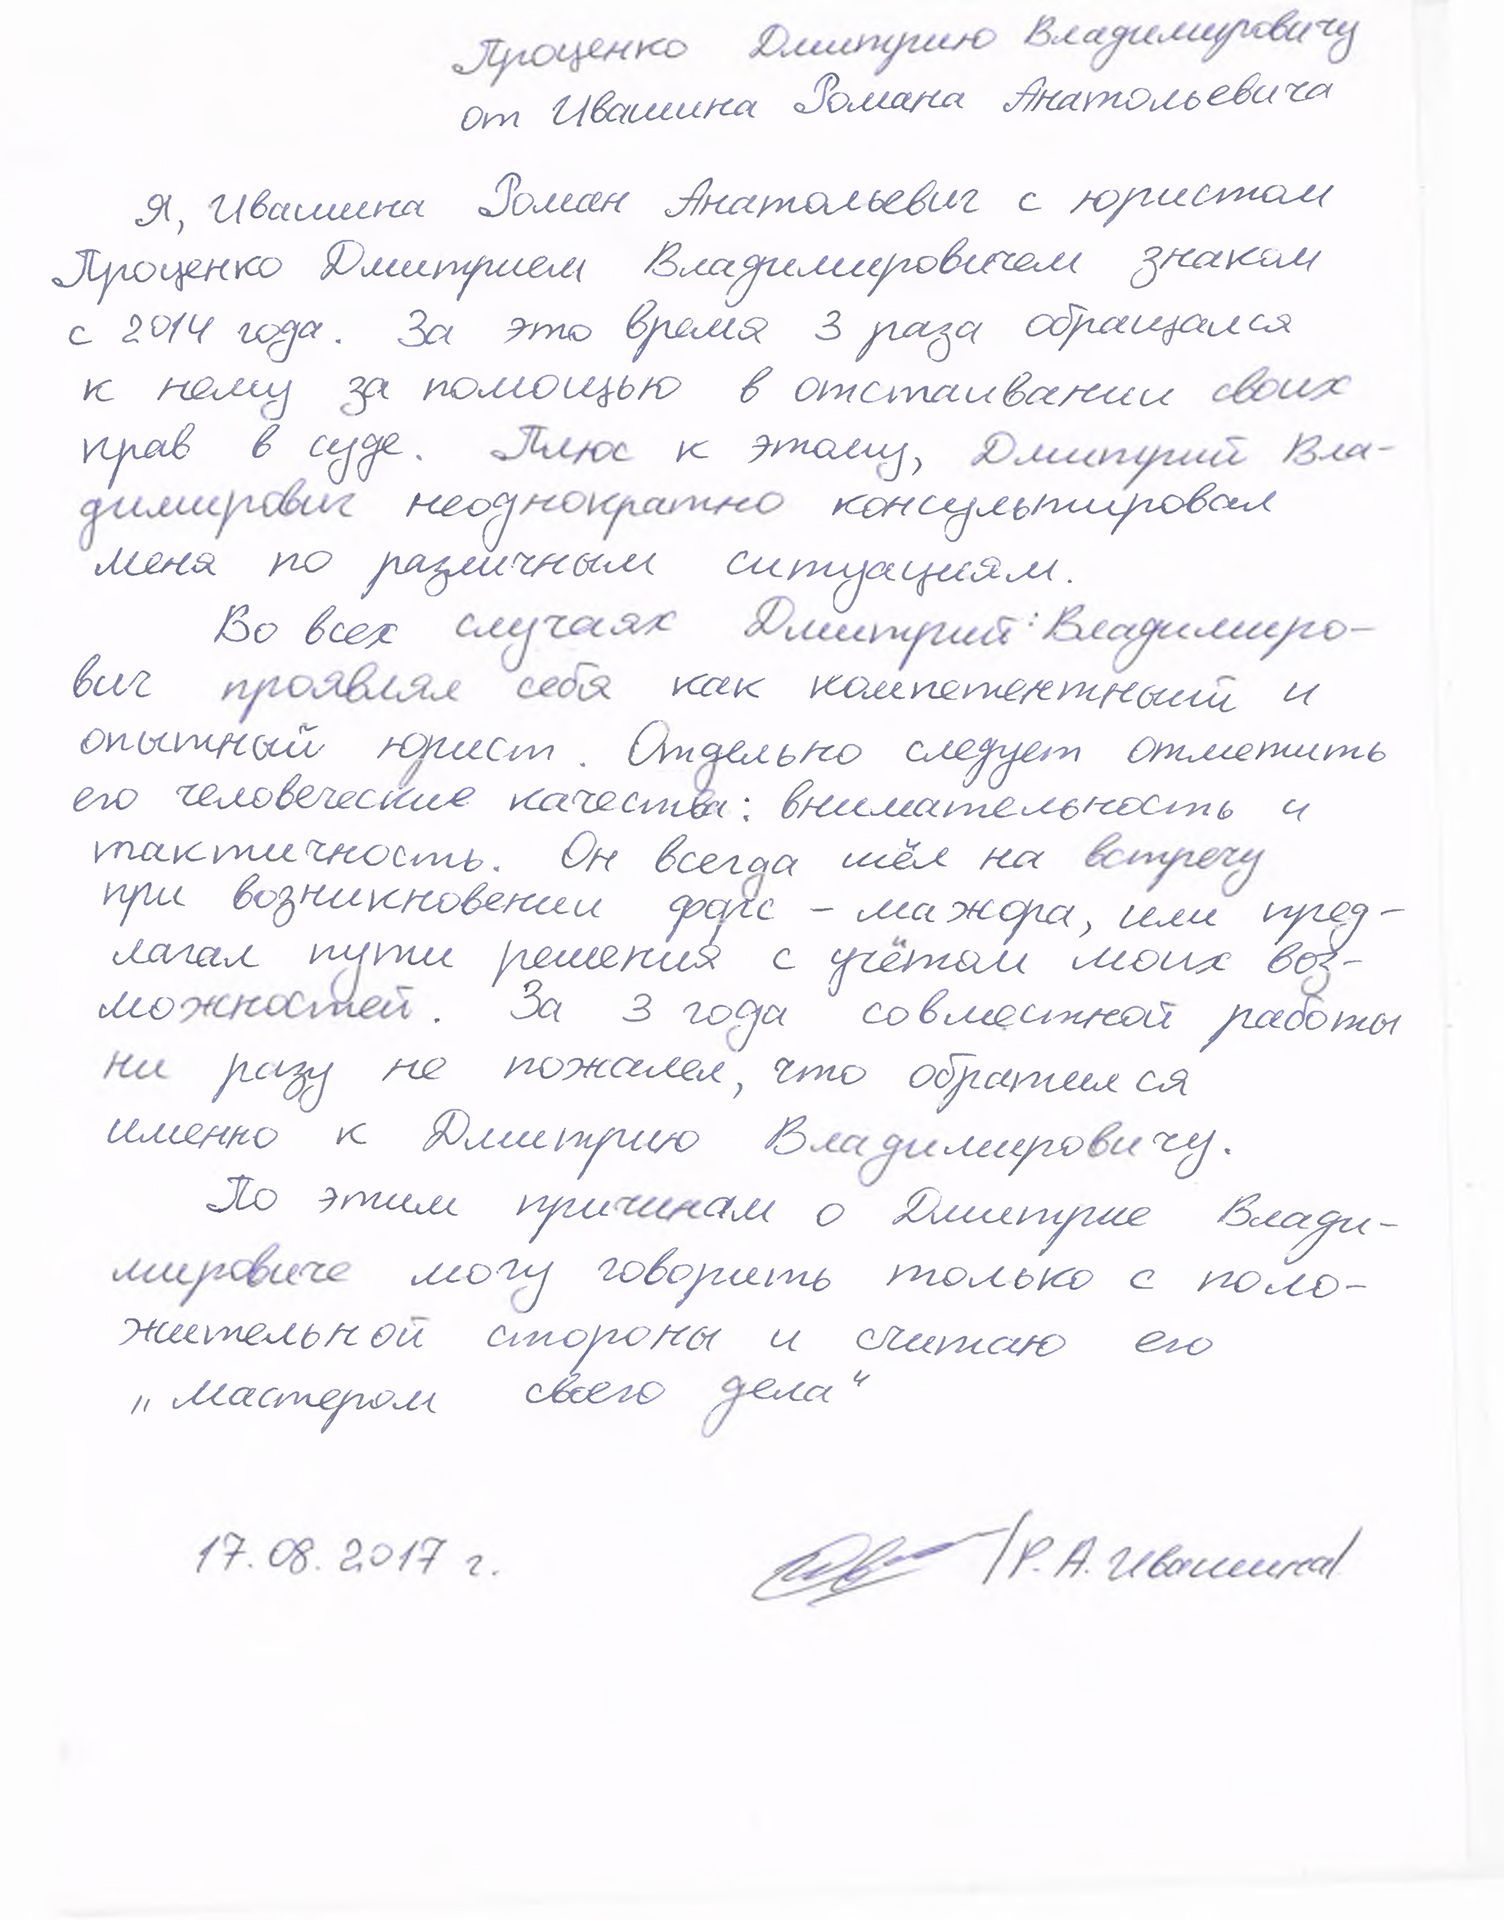 Проценко Дмитрию Владимировичу
от Ивашина Романа Анатольевича
Я, Ивашина Роман Анатольевич с юристом
Проценко Дмитрием Владимировичем знаком
с 2014 года. За это время 3 раза обращался
к нему за помощью в отстаивании своих
прав в суде. Плюс к этому, Дмитрий Вла-
димирович неоднократно консультировал
меня по различным ситуациям.
Во всех случаях Дмитрий Владимиро-
вич проявлял себя как компетентный и
опытный юрист. Отдельно следует отметить
его человеческие качества: внимательность и
тактичность. Он всегда шёл на встречу
при возникновении форс-мажора, или пред-
лагал пути решения с учётом моих воз-
можностей. За 3 года совместной работы
ни разу не пожалел, что обратился
именно к Дмитрию Владимировичу.
По этим причинам о Дмитрие Влади-
мировиче могу говорить только с поло-
жительной стороны и считаю его
„мастером своего дела“
17.08.2017 г. /Р. А. Ивашина/